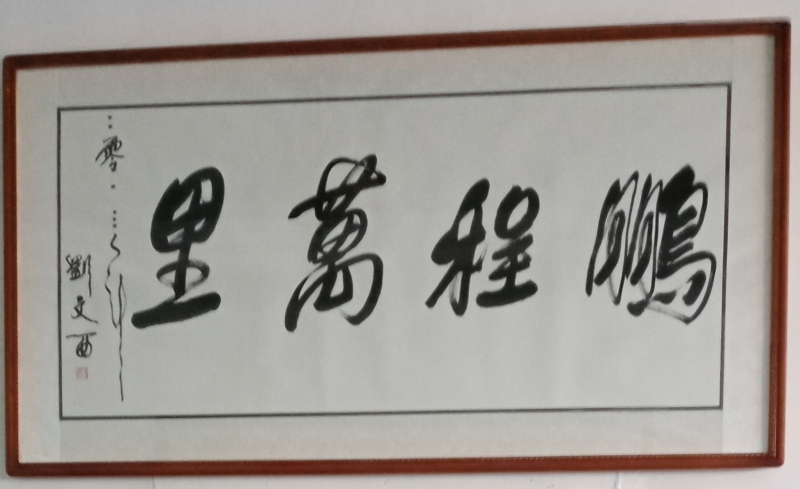 鵬程萬里
劉文西